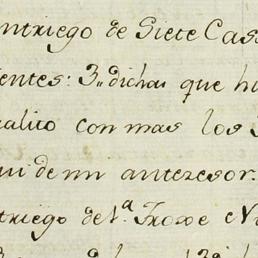 ntriego de Siete Cas
ientes: 3,, dichas que hi
ralito con mas los
ui de mi antezesor.
triego de 1ª Troxe e Ni